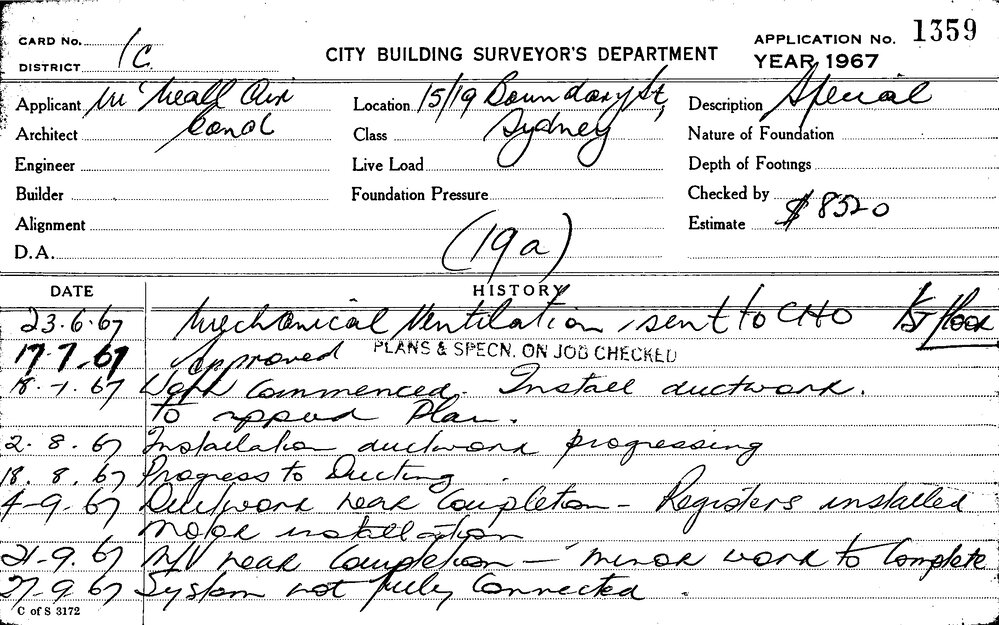 CARD No. 1c.
DISTRICT
CITY BUILDING SURVEYOR'S DEPARTMENT
APPLICATION No. 1359
YEAR 1967
Applicant Mc Neall Air
Cond
Location 15/19 Boundary St,
Sydney
Description Special
Architect
Class
Nature of Foundation
Engineer
Live Load
Depth of Footings
Builder
Foundation Pressure
Checked by
Alignment
Estimate $8520
D.A.
(19a)
DATE HISTORY
23.6.67 Mechanical Ventilation, sent to CHO floor
17.7.67 Approved PLANS & SPECN. ON JOB CHECKED
18.7.67 Work Commenced. Install ductwork.
to appvd Plan.
2.8.67 Installation ductwork progressing
18.8.67 Progress to Ducting.
4-9.67 Ductwork near Completion - Registers installed
motor installation
21-9.67 M/V near Completion - minor work to Complete
27-9.67 System not fully Connected.
C of S 3172